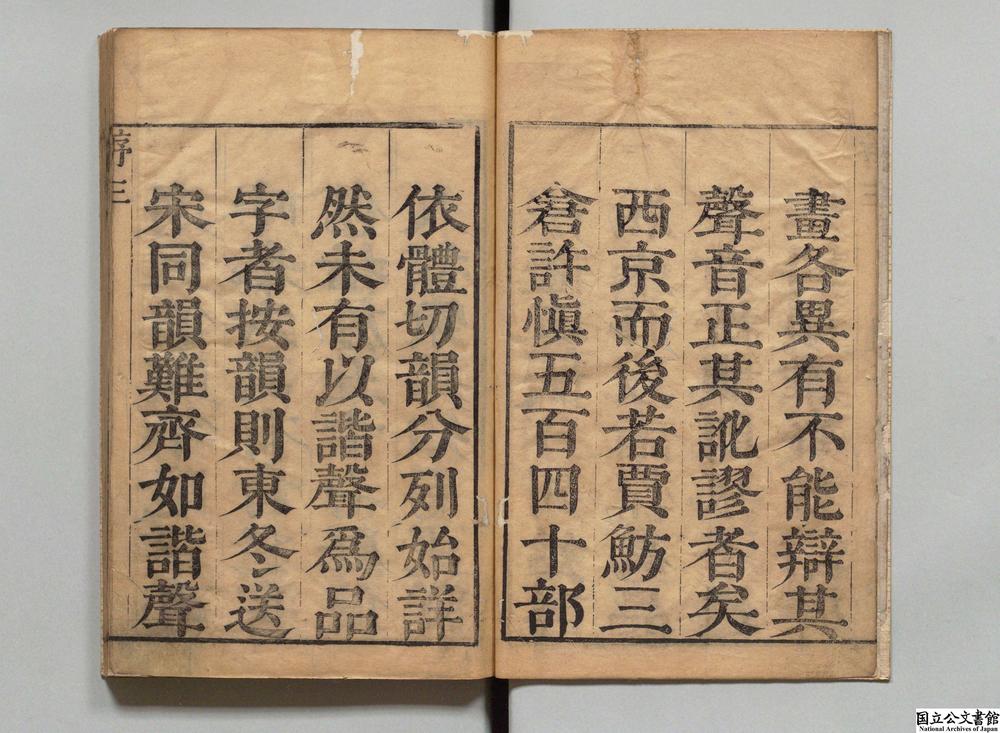 畫各異有不能辯其
聲音正其訛謬者矣
西京而後若賈魴三
倉許愼五百四十部
依體切韻分列始詳
然未有以諧聲爲品
字者按韻則東冬送
宋同韻難齊如諧聲
序三
国立公文書館
National Archives of Japan